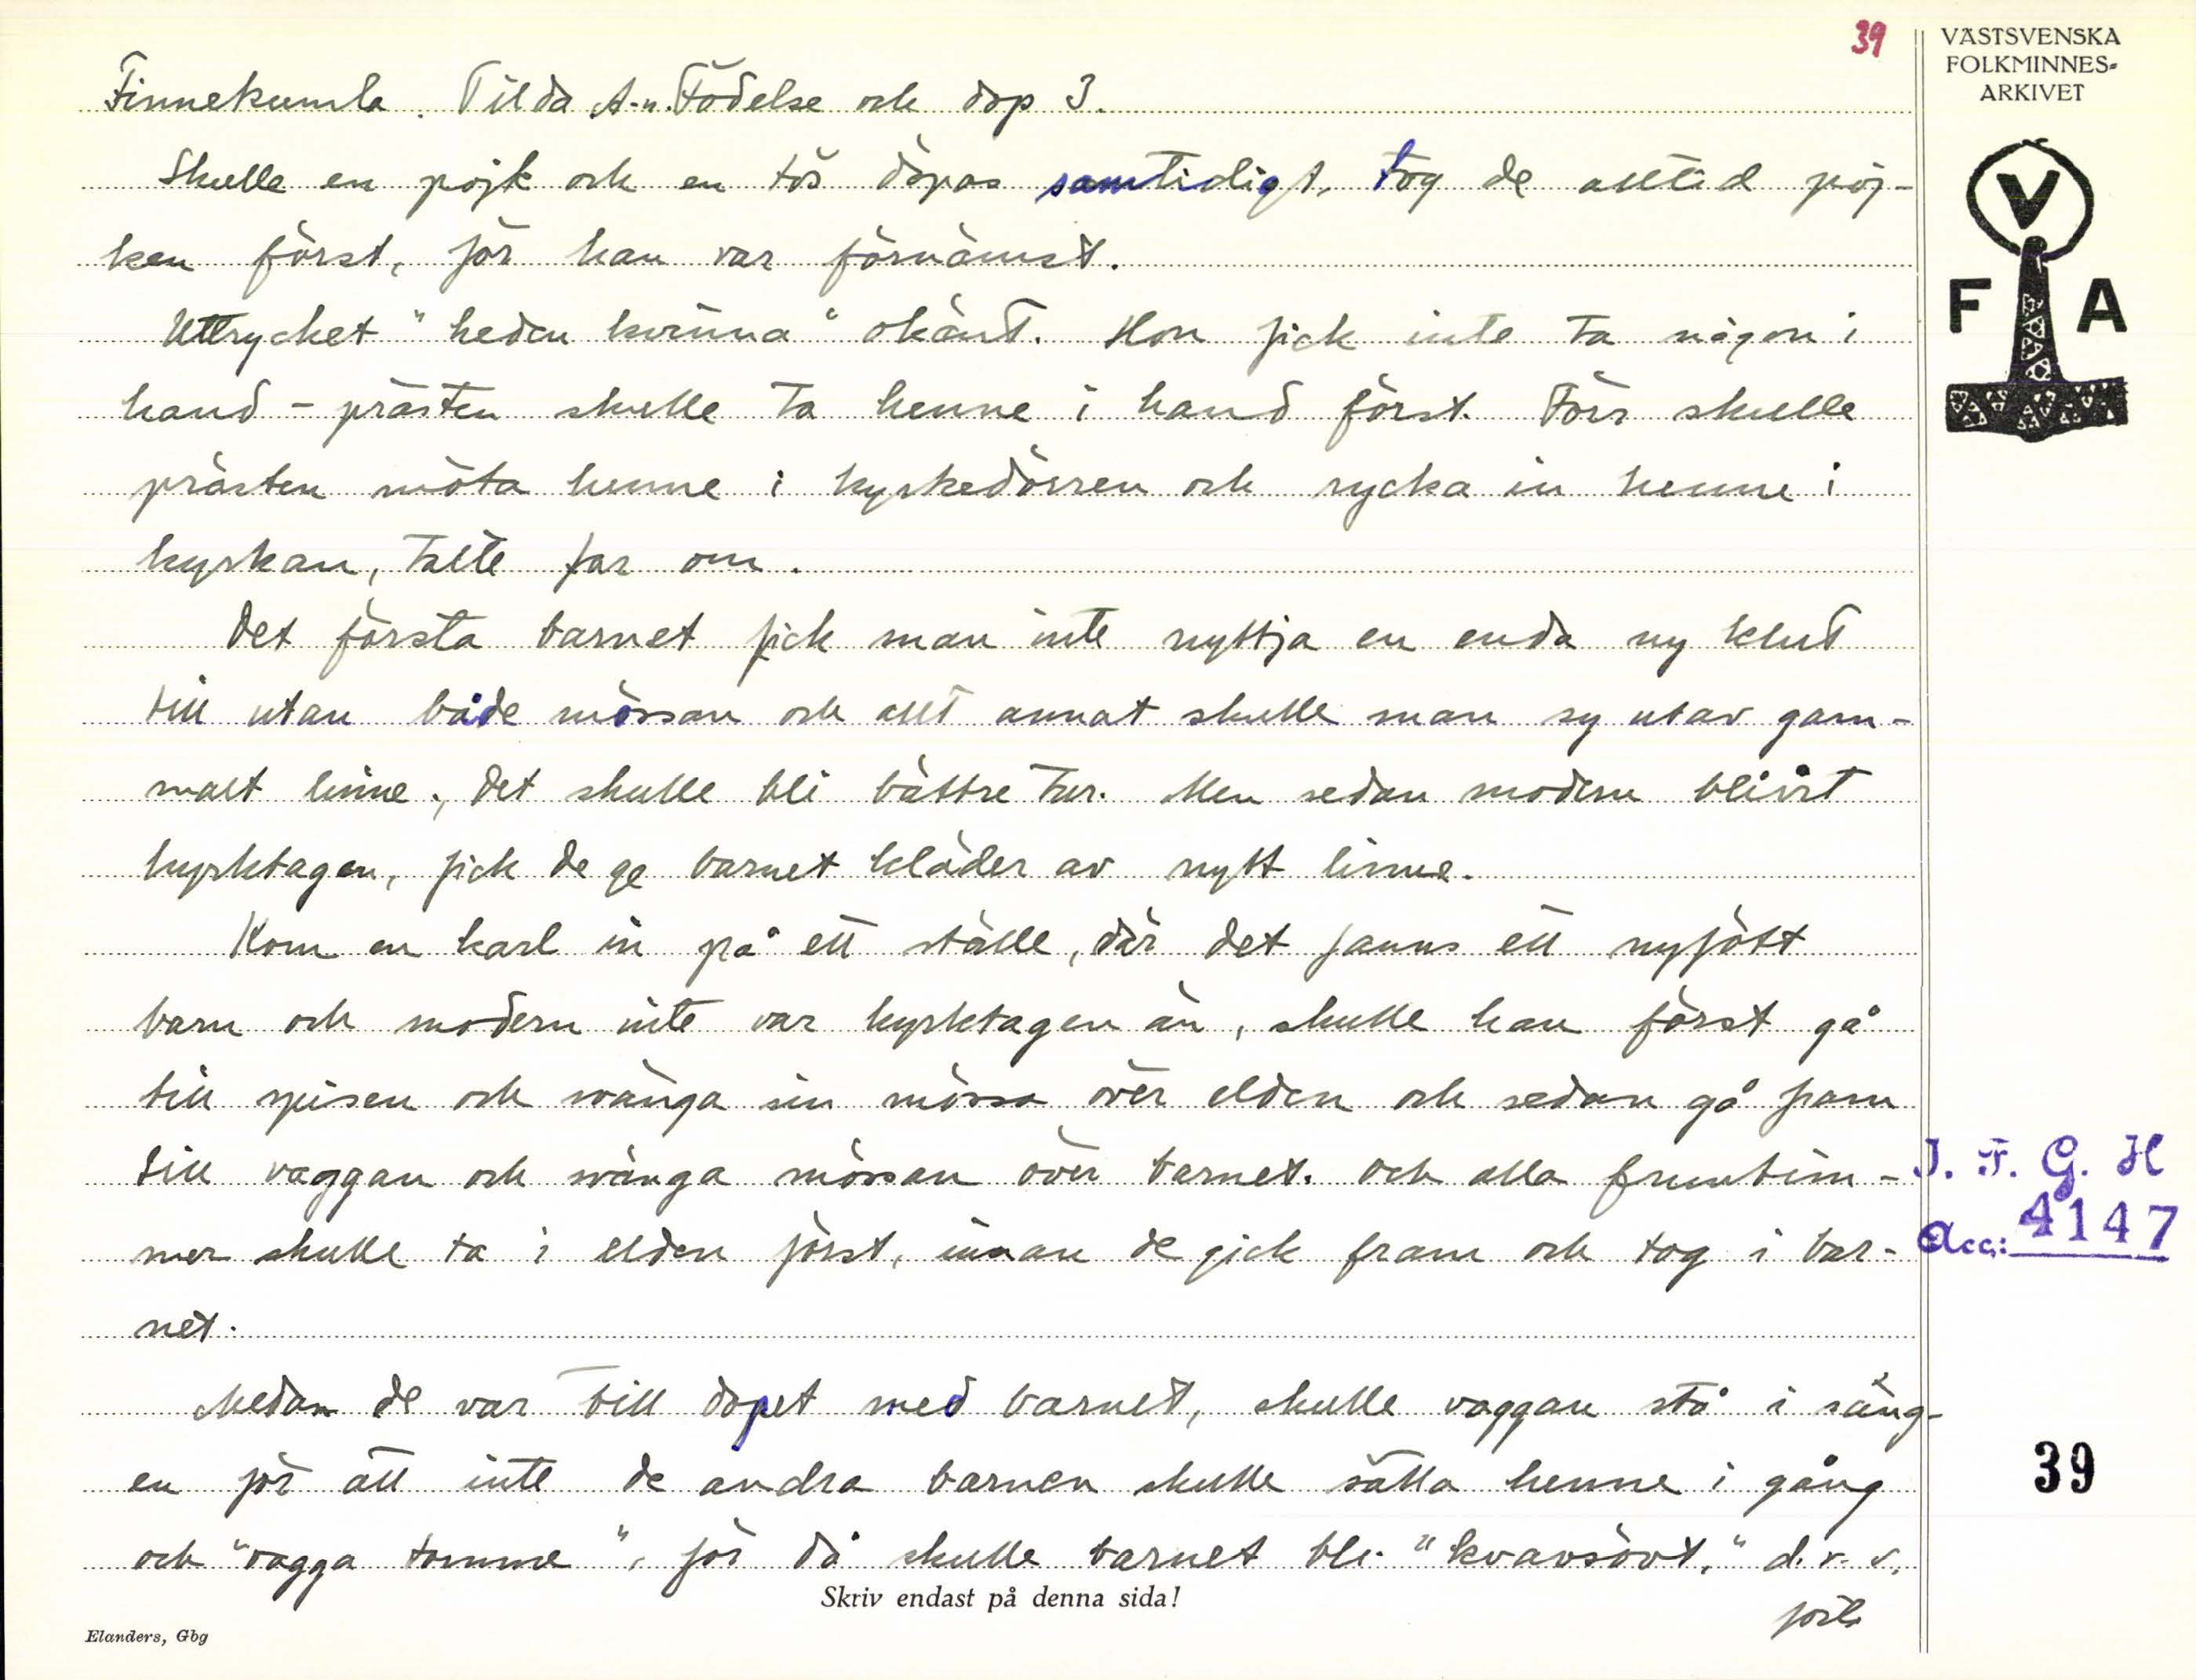 39
VÄSTSVENSKA
FOLKMINNES-
ARKIVET
Finnekumla. Tilda A-n. Födelse och dop 3.
Skulle en pojk och en tös döpas samtidigt, tog de alltid poj-
ken först, för han var förnämst.
Uttrycket "heden kvinna" okänt. Hon fick inte ta någon i
hand - prästen skulle ta henne i hand först. Förr skulle
prästen möta henne i kyrkedörren och rycka in henne i
kyrkan, talte far om.
Det första barnet fick man inte nyttja en enda ny klut
till utan både mössan och allt annat skulle man sy utav gam-
malt linne, det skulle bli bättre tur. Men sedan modern blivit
kyrktagen, fick de ge barnet kläder av nytt linne.
Kom en karl in på ett ställe, där det fanns ett nyfött
barn och modern inte var kyrktagen än, skulle han först gå
till spisen och svänga sin mössa över elden och sedan gå fram
till vaggan och svänga mössan över barnet. Och alla fruntim-
mer skulle ta i elden först, innan de gick fram och tog i bar-
net.
Medan de var till dopet med barnet, skulle vaggan stå i säng-
en för att inte de andra barnen skulle sätta henne i gång
och "vagga tomme", för då skulle barnet bli "kvavsövt," d.v.s.
forts.
V
F A
I. F. G. H
Acc: 4147
39
Skriv endast på denna sida!
Elanders, Gbg